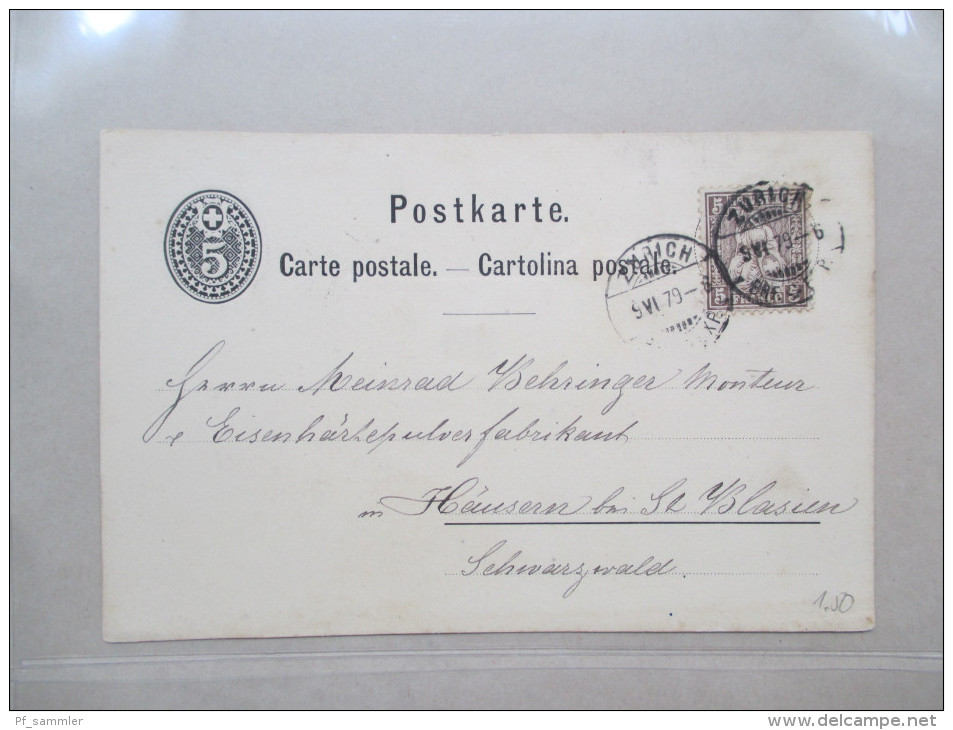 Postkarte.
Carte postale. — Cartolina postale.
5
5 5
5 FRANCO 5
ZÜRICH
9 VI. 79 – 6
ZÜRICH
9 VI. 79 – 6
Herrn Meinrad Behringer Monteur
& Eisenhärtepulverfabrikant
in Häusern bei St Blasien
Schwarzwald.
1.50
Pf_sammler
www.delcampe.net